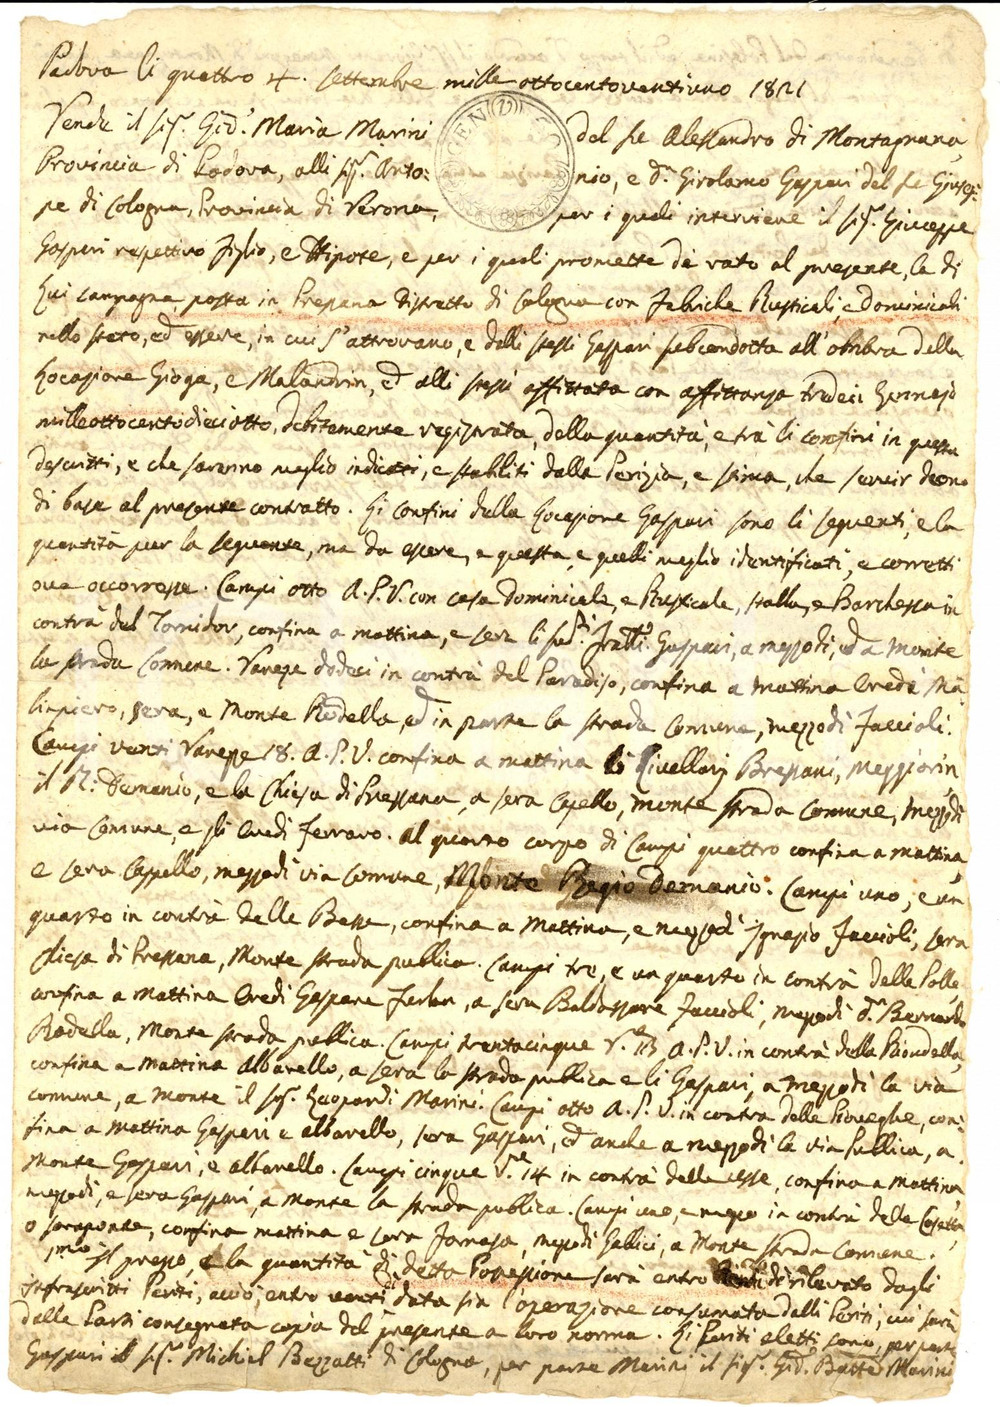 Padova li quattro 4. Settembre mille ottocentoventiuno 1821
Vende il Sig.r Gio: Maria Marini del fu Alessandro di Montagnana,
Provincia di Padova, alli Sig.ri Anto: nio, e D.n Girolamo Gaspari del fu Giusep:
pe di Cologna, Provincia di Verona, per i quali interviene il Sig.r Giuseppe
Gaspari respettivo Figlio, e Nipote, e per i quali promette de rato al presente, la di
lui campagna posta in Pressana Distretto di Cologna con Fabriche Rusticali, e Dominicali
nello stato, ed essere, in cui s'attrovano, e dalli stessi Gaspari condotta all' ombra della
Locazione Gioga, e Malandrin, ed alli stessi affittata con affittanza tredeci Gennajo
milleottocentodieciotto, debitamente registrata, della quantità, e trà li confini in questa
descritti, e che saranno meglio indicati, e stabiliti dalla Perizia, e stima, che servir deono
di base al presente contratto. Li confini della Locazione Gaspari sono li seguenti, e la
quantità pur la seguente, ma da essere, e questa, e quelli meglio identificati, e corretti
ove occorresse. Campi otto A.P.V. con casa Dominicale, e Rusticale, stalla, e Barchessa in
contrà del Tornidor, confina a mattina, e sera li sud.i Fratti Gaspari, a mezzodì, ed a Monte
la strada Comune. Vaneze dodeci in contrà del Paradiso, confina a mattina Eredi Ma:
linpiero, sera, e Monte Rodella, ed in parte la strada Comune, mezzodì Faccioli.
Campi venti Vanezze 18. A.P.V. confina a mattina li Livellarj Bressani, Meggiorin,
il R.o Demanio, e la Chiesa di Pressana, a sera Capello, Monte strada Comune, mezzodì
via Comune, e gli Eredi Ferraro. Al quarto corpo di Campi quattro confina a mattina,
e sera Cappello, mezzodì via Comune, Monte Regio Demanio. Campi uno, e un
quarto in contrà delle Basse, confina a Mattina, e mezzodì Ignazio Faccioli, sera
Chiesa di Pressana, Monte strada publica. Campi tre, e un quarto in contrà delle Polle,
confina a Mattina Eredi Gaspare Ferlan, a sera Baldassare Faccioli, mezzodì D.n Bernardo
Rodella, Monte strada publica. Campi trentacinque A.P.V. in contrà della Riondella,
confina a mattina Albarello, a sera la strada publica e li Gaspari, a mezzodì la via
comune, a Monte il Sig.r Leopardi Marini. Campi otto A.P.V. in contrà delle Pioveghe, con:
fina a Mattina Gaspari e Albarello, sera Gaspari, ed anche a mezzodì la via Publica, a
Monte Gaspari, e Albarello. Campi cinque V.e 14 in contrà delle confina a Mattina,
mezzodì, e sera Gaspari, a Monte la strada publica. Campi uno, e mezzo in contrà delle Casette,
o Saraponte, confina mattina e sera Farnesa, mezzodì Gallici, a Monte strada Comune.
p.mo Il prezzo, e la quantità di detta Possessione sarà entro dì rilevato dagli
infrascritti Periti, acciò, entro venti data sia l'operazione consumata dalli Periti, cui sarà
dalle Parti consegnata copia del presente a loro norma. Li Periti eletti sono, per parte
Gaspari il Sig.r Michiel Bezzatti di Cologna, per parte Marini il Sig.r Gio: Batta Marini